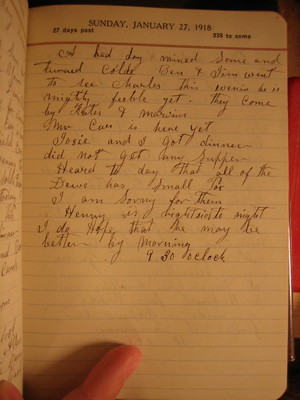 SUNDAY, JANUARY 27, 1918
27 days past 338 to come
A bad day rained some and
turned Colde Ben & Jim went
to see Charles this evenin he is
mighty feeble yet. they come
by Kates & marvins
Mr Cars is here yet
Josie and I got dinner
did not get any Supper
Heard to day that all of the
Dews has Small Pox
I am Sorry for them
Henry is to night
I do Hope that he may be
better by morning
9 30 oclock